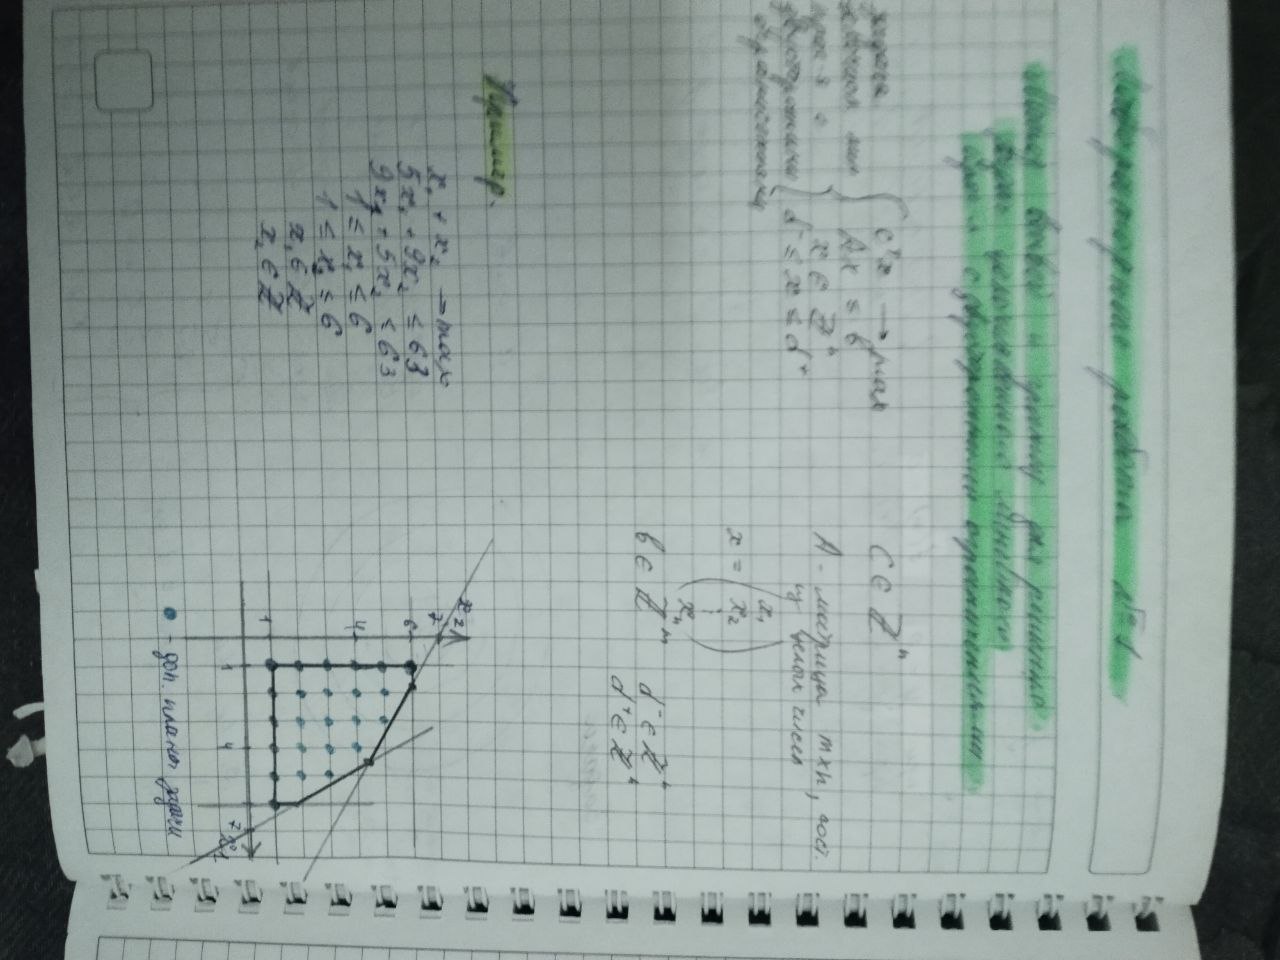 Лабораторная работа №1
Метод ветвей и границ для решения
задач целочисленного линейного
с двусторонними ограничениями
задача
прог-я с
двусторонними
ограничениями
cᵀx → max
Ax ≤ b
x ∈ ℤⁿ
d⁻ ≤ x ≤ d⁺
c ∈ ℤⁿ
A - матрица m×n, сост.
из целых чисел
x = (x₁
x₂
⋮
xₙ)
b ∈ ℤᵐ d⁻ ∈ ℤⁿ
d⁺ ∈ ℤⁿ
Пример.
x₁ + x₂ → max
5x₁ + 9x₂ ≤ 63
9x₁ + 5x₂ ≤ 63
1 ≤ x₁ ≤ 6
1 ≤ x₂ ≤ 6
x₁ ∈ ℤ
x₂ ∈ ℤ
x₂
7
6
4
1
1 4 7 x₁
- доп. планы задачи